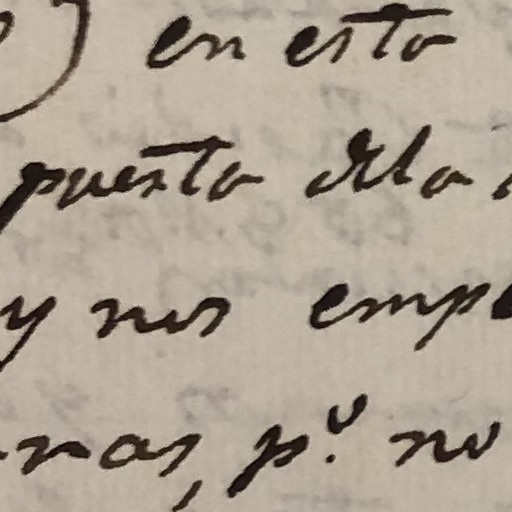 ) en esta
puesta dela
y nos emp
nas, p.º no